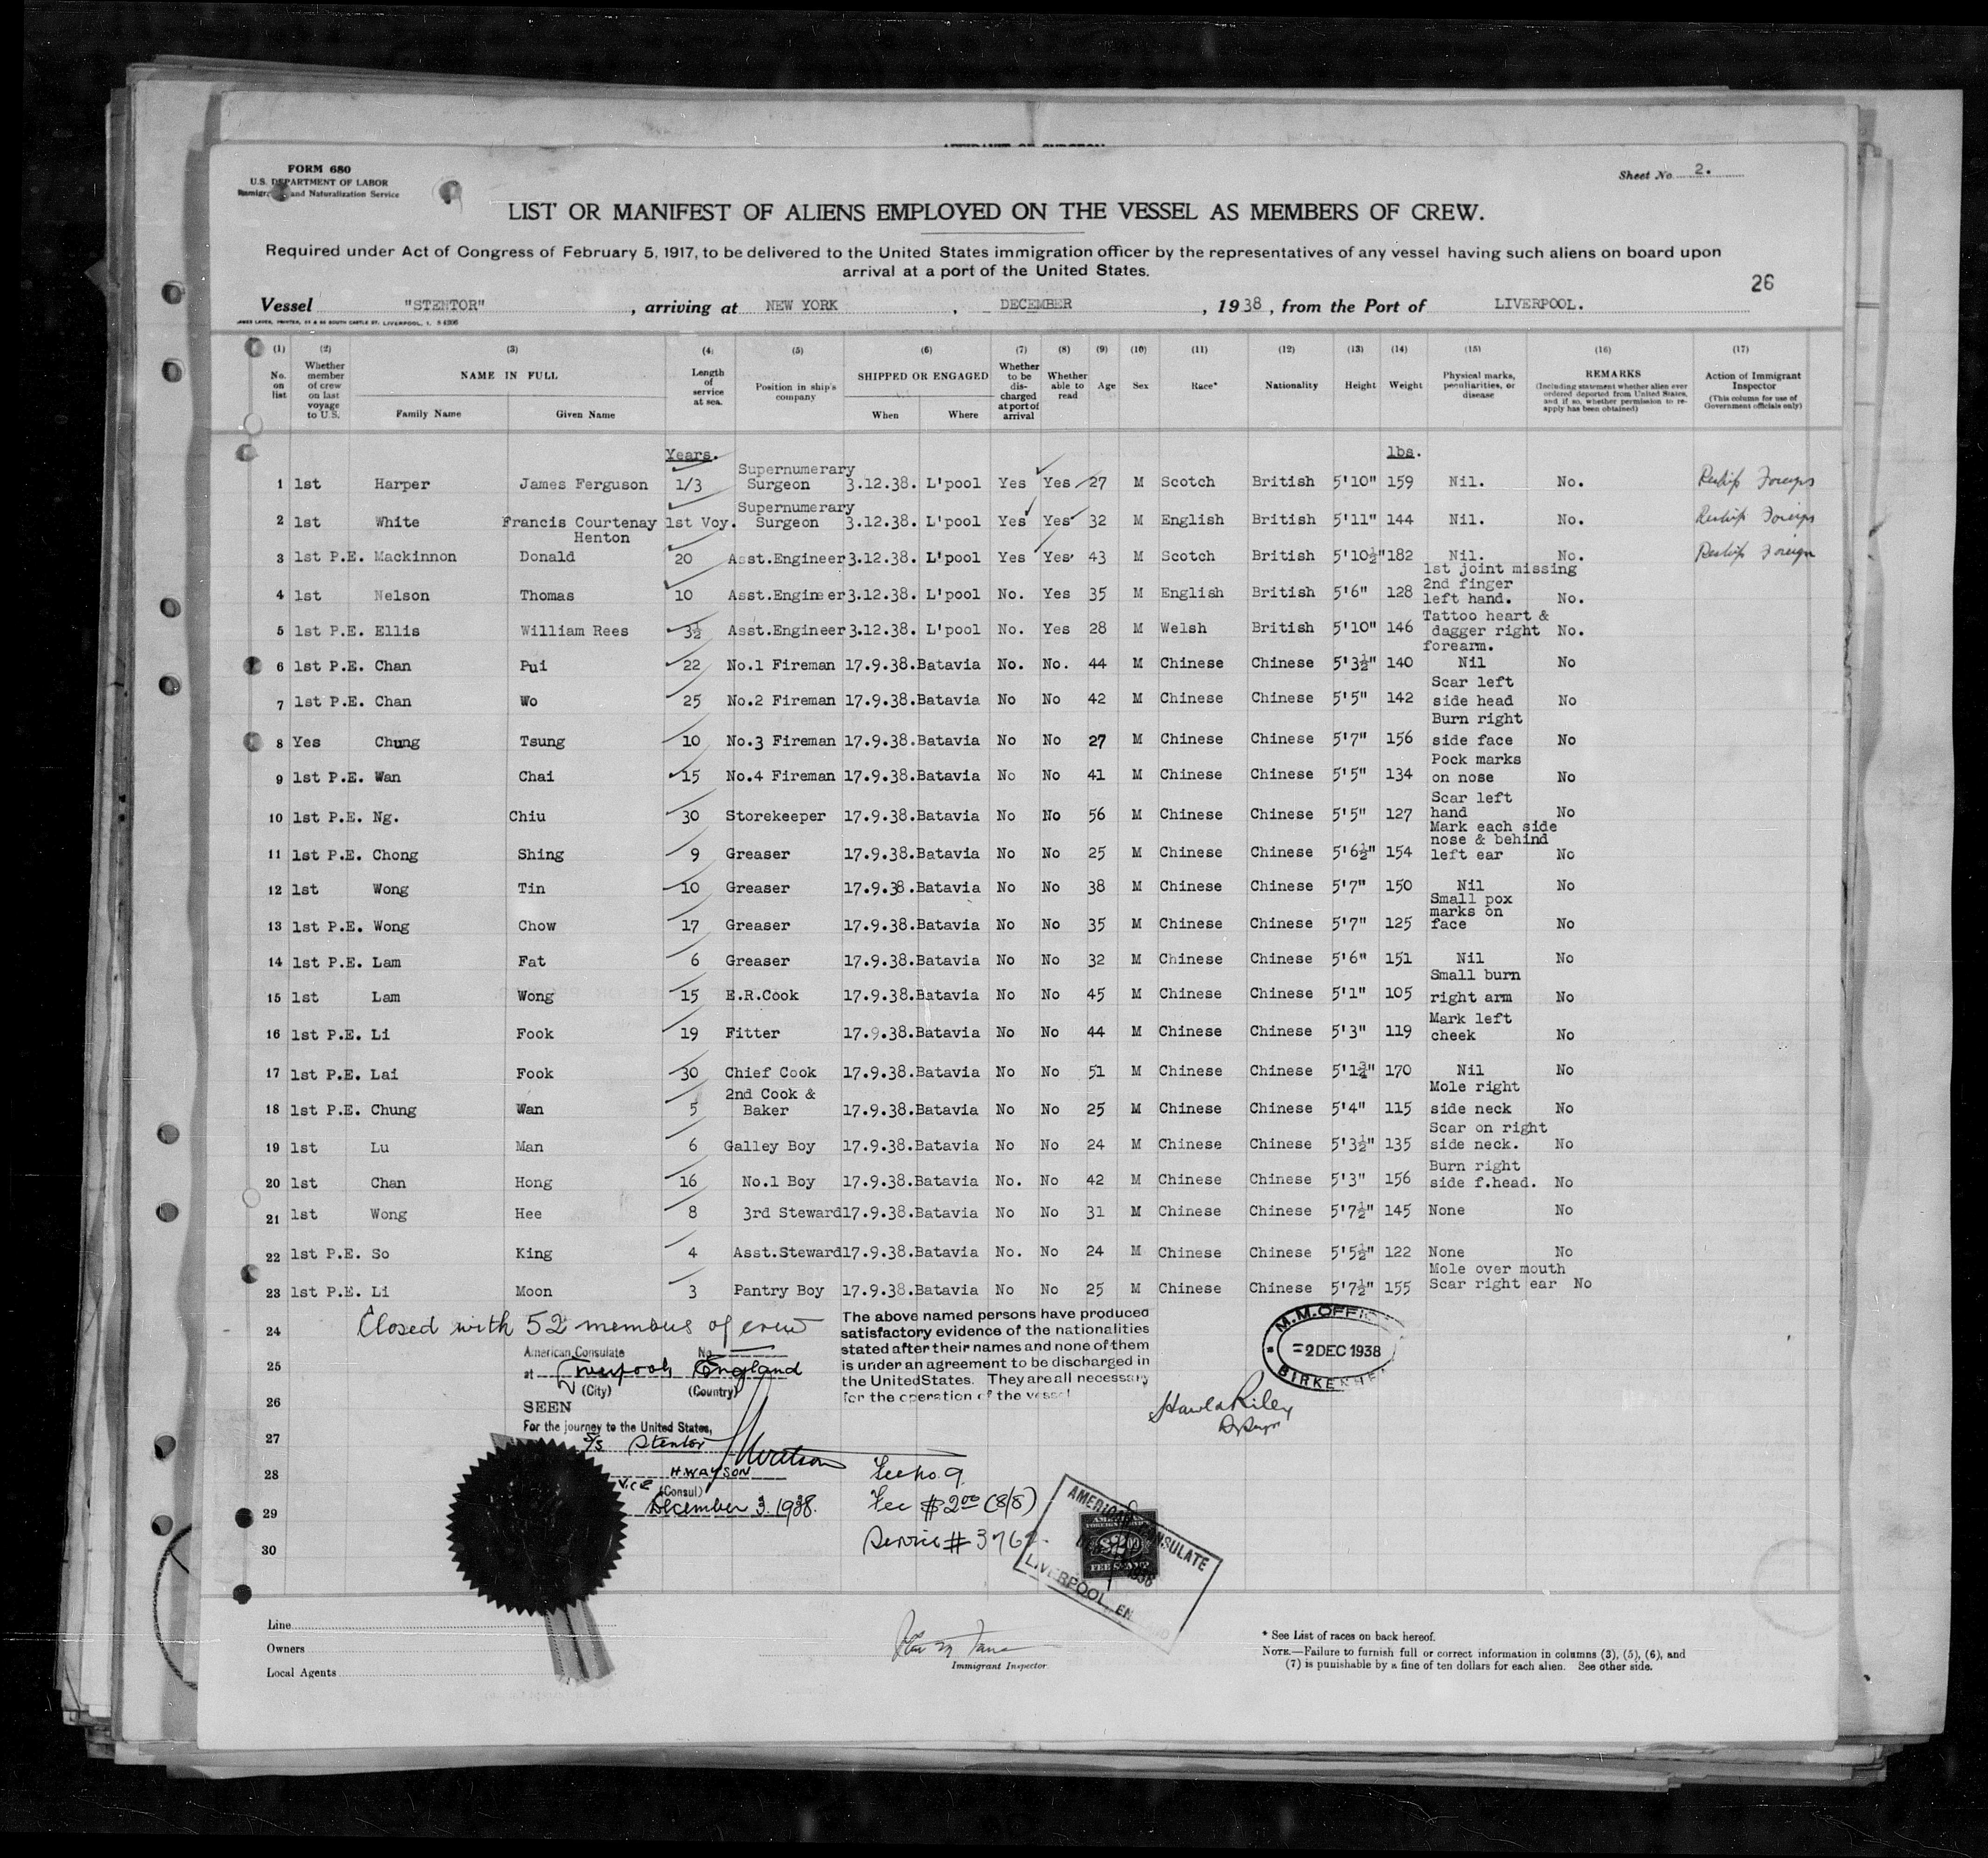 AFFIDAVIT OF SURGEON
FORM 680
U.S. DEPARTMENT OF LABOR
and Naturalization Service
Sheet No. 2.
LIST OR MANIFEST OF ALIENS EMPLOYED ON THE VESSEL AS MEMBERS OF CREW.
Required under Act of Congress of February 5, 1917, to be delivered to the United States immigration officer by the representatives of any vessel having such aliens on board upon
arrival at a port of the United States.
26
Vessel "STENTOR", arriving at NEW YORK, DECEMBER, 1938, from the Port of LIVERPOOL.
(1) (2) (3) (4) (5) (6) (7) (8) (9) (10) (11) (12) (13) (14) (15) (16) (17)
No. on list
Whether member of crew on last voyage to U.S.
NAME IN FULL
Family Name Given Name
Length of service at sea.
Position in ship's company
SHIPPED OR ENGAGED
When Where
Whether to be discharged at port of arrival
Whether able to read
Age
Sex
Race*
Nationality
Height
Weight
Physical marks, peculiarities, or disease
REMARKS
(Including statement whether alien ever ordered deported from United States, and if so, whether permission to re-apply has been obtained)
Action of Immigrant Inspector
(This column for use of Government officials only)
Years. lbs.
1 1st Harper James Ferguson 1/3 Supernumerary Surgeon 3.12.38. L'pool Yes Yes 27 M Scotch British 5'10" 159 Nil. No. Reship Foreign
2 1st White Francis Courtenay Henton 1st Voy. Supernumerary Surgeon 3.12.38. L'pool Yes Yes 32 M English British 5'11" 144 Nil. No. Reship Foreign
3 1st P.E. Mackinnon Donald 20 Asst.Engineer 3.12.38. L'pool Yes Yes 43 M Scotch British 5'10½" 182 Nil. No. Reship Foreign
4 1st Nelson Thomas 10 Asst.Engineer 3.12.38. L'pool No. Yes 35 M English British 5'6" 128 1st joint missing 2nd finger left hand. No.
5 1st P.E. Ellis William Rees 3½ Asst.Engineer 3.12.38. L'pool No. Yes 28 M Welsh British 5'10" 146 Tattoo heart & dagger right forearm. No.
6 1st P.E. Chan Pui 22 No.1 Fireman 17.9.38. Batavia No. No. 44 M Chinese Chinese 5'3½" 140 Nil No
7 1st P.E. Chan Wo 25 No.2 Fireman 17.9.38. Batavia No No 42 M Chinese Chinese 5'5" 142 Scar left side head No
8 Yes Chung Tsung 10 No.3 Fireman 17.9.38. Batavia No No 27 M Chinese Chinese 5'7" 156 Burn right side face No
9 1st P.E. Wan Chai 15 No.4 Fireman 17.9.38. Batavia No No 41 M Chinese Chinese 5'5" 134 Pock marks on nose No
10 1st P.E. Ng. Chiu 30 Storekeeper 17.9.38. Batavia No No 56 M Chinese Chinese 5'5" 127 Scar left hand No
11 1st P.E. Chong Shing 9 Greaser 17.9.38. Batavia No No 25 M Chinese Chinese 5'6½" 154 Mark each side nose & behind left ear No
12 1st Wong Tin 10 Greaser 17.9.38. Batavia No No 38 M Chinese Chinese 5'7" 150 Nil No
13 1st P.E. Wong Chow 17 Greaser 17.9.38. Batavia No No 35 M Chinese Chinese 5'7" 125 Small pox marks on face No
14 1st P.E. Lam Fat 6 Greaser 17.9.38. Batavia No No 32 M Chinese Chinese 5'6" 151 Nil No
15 1st Lam Wong 15 E.R.Cook 17.9.38. Batavia No No 45 M Chinese Chinese 5'1" 105 Small burn right arm No
16 1st P.E. Li Fook 19 Fitter 17.9.38. Batavia No No 44 M Chinese Chinese 5'3" 119 Mark left cheek No
17 1st P.E. Lai Fook 30 Chief Cook 17.9.38. Batavia No No 51 M Chinese Chinese 5'1¾" 170 Nil No
18 1st P.E. Chung Wan 5 2nd Cook & Baker 17.9.38. Batavia No No 25 M Chinese Chinese 5'4" 115 Mole right side neck No
19 1st Lu Man 6 Galley Boy 17.9.38. Batavia No No 24 M Chinese Chinese 5'3½" 135 Scar on right side neck. No
20 1st Chan Hong 16 No.1 Boy 17.9.38. Batavia No. No 42 M Chinese Chinese 5'3" 156 Burn right side f.head. No
21 1st Wong Hee 8 3rd Steward 17.9.38. Batavia No No 31 M Chinese Chinese 5'7½" 145 None No
22 1st P.E. So King 4 Asst.Steward 17.9.38. Batavia No. No 24 M Chinese Chinese 5'5½" 122 None No
23 1st P.E. Li Moon 3 Pantry Boy 17.9.38. Batavia No No 25 M Chinese Chinese 5'7½" 155 Mole over mouth Scar right ear No
24 Closed with 52 members of crew
25
26
27
28
29
30
American Consulate No.
at Liverpool England
(City) (Country)
SEEN
For the journey to the United States,
S/S Stentor
H. WATSON
Vice (Consul)
December 3. 1938.
The above named persons have produced
satisfactory evidence of the nationalities
stated after their names and none of them
is under an agreement to be discharged in
the United States. They are all necessary
for the operation of the vessel
Fee no. 9
Fee $2.00 (8/8)
Service #
M.M. OFFICE
2 DEC 1938
BIRKENHE
Riley
AMERICAN CONSULATE
LIVERPOOL, EN
AMERICAN
FEE STAMP
Line
Owners
Local Agents
Immigrant Inspector
* See List of races on back hereof.
NOTE.—Failure to furnish full or correct information in columns (3), (5), (6), and
(7) is punishable by a fine of ten dollars for each alien. See other side.